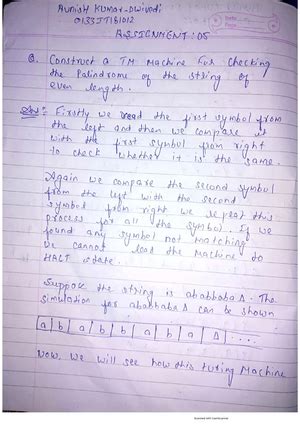 Avnish Kumar Dwivedi
0133IT181012
ASSIGNMENT:05
Q. Construct a TM Machine for Checking
the Palindrome of the string of
even length.
Ans:- Firstly we read the first symbol from
the left and then we compare it
with the first symbol from right
to check whether it is the same.
Again we compare the second symbol
from the left with the second
symbol from right we repeat this
process for all the symbol. if we
found any symbol not matching
we cannot lead the machine to
HALT state.
Suppose the string is ababbabaΔ. The
simulation for ababbabaΔ can be shown
a b a b b a b a Δ ....
Now, we will see how this turing Machine